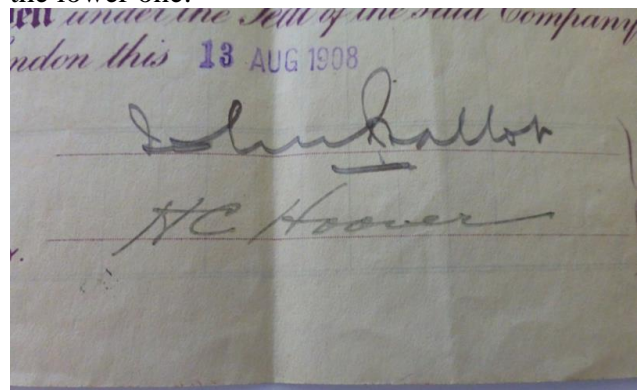 the lower one.
en under the Seal of the said Company
ndon this 13 AUG 1908
John
H C Hoover